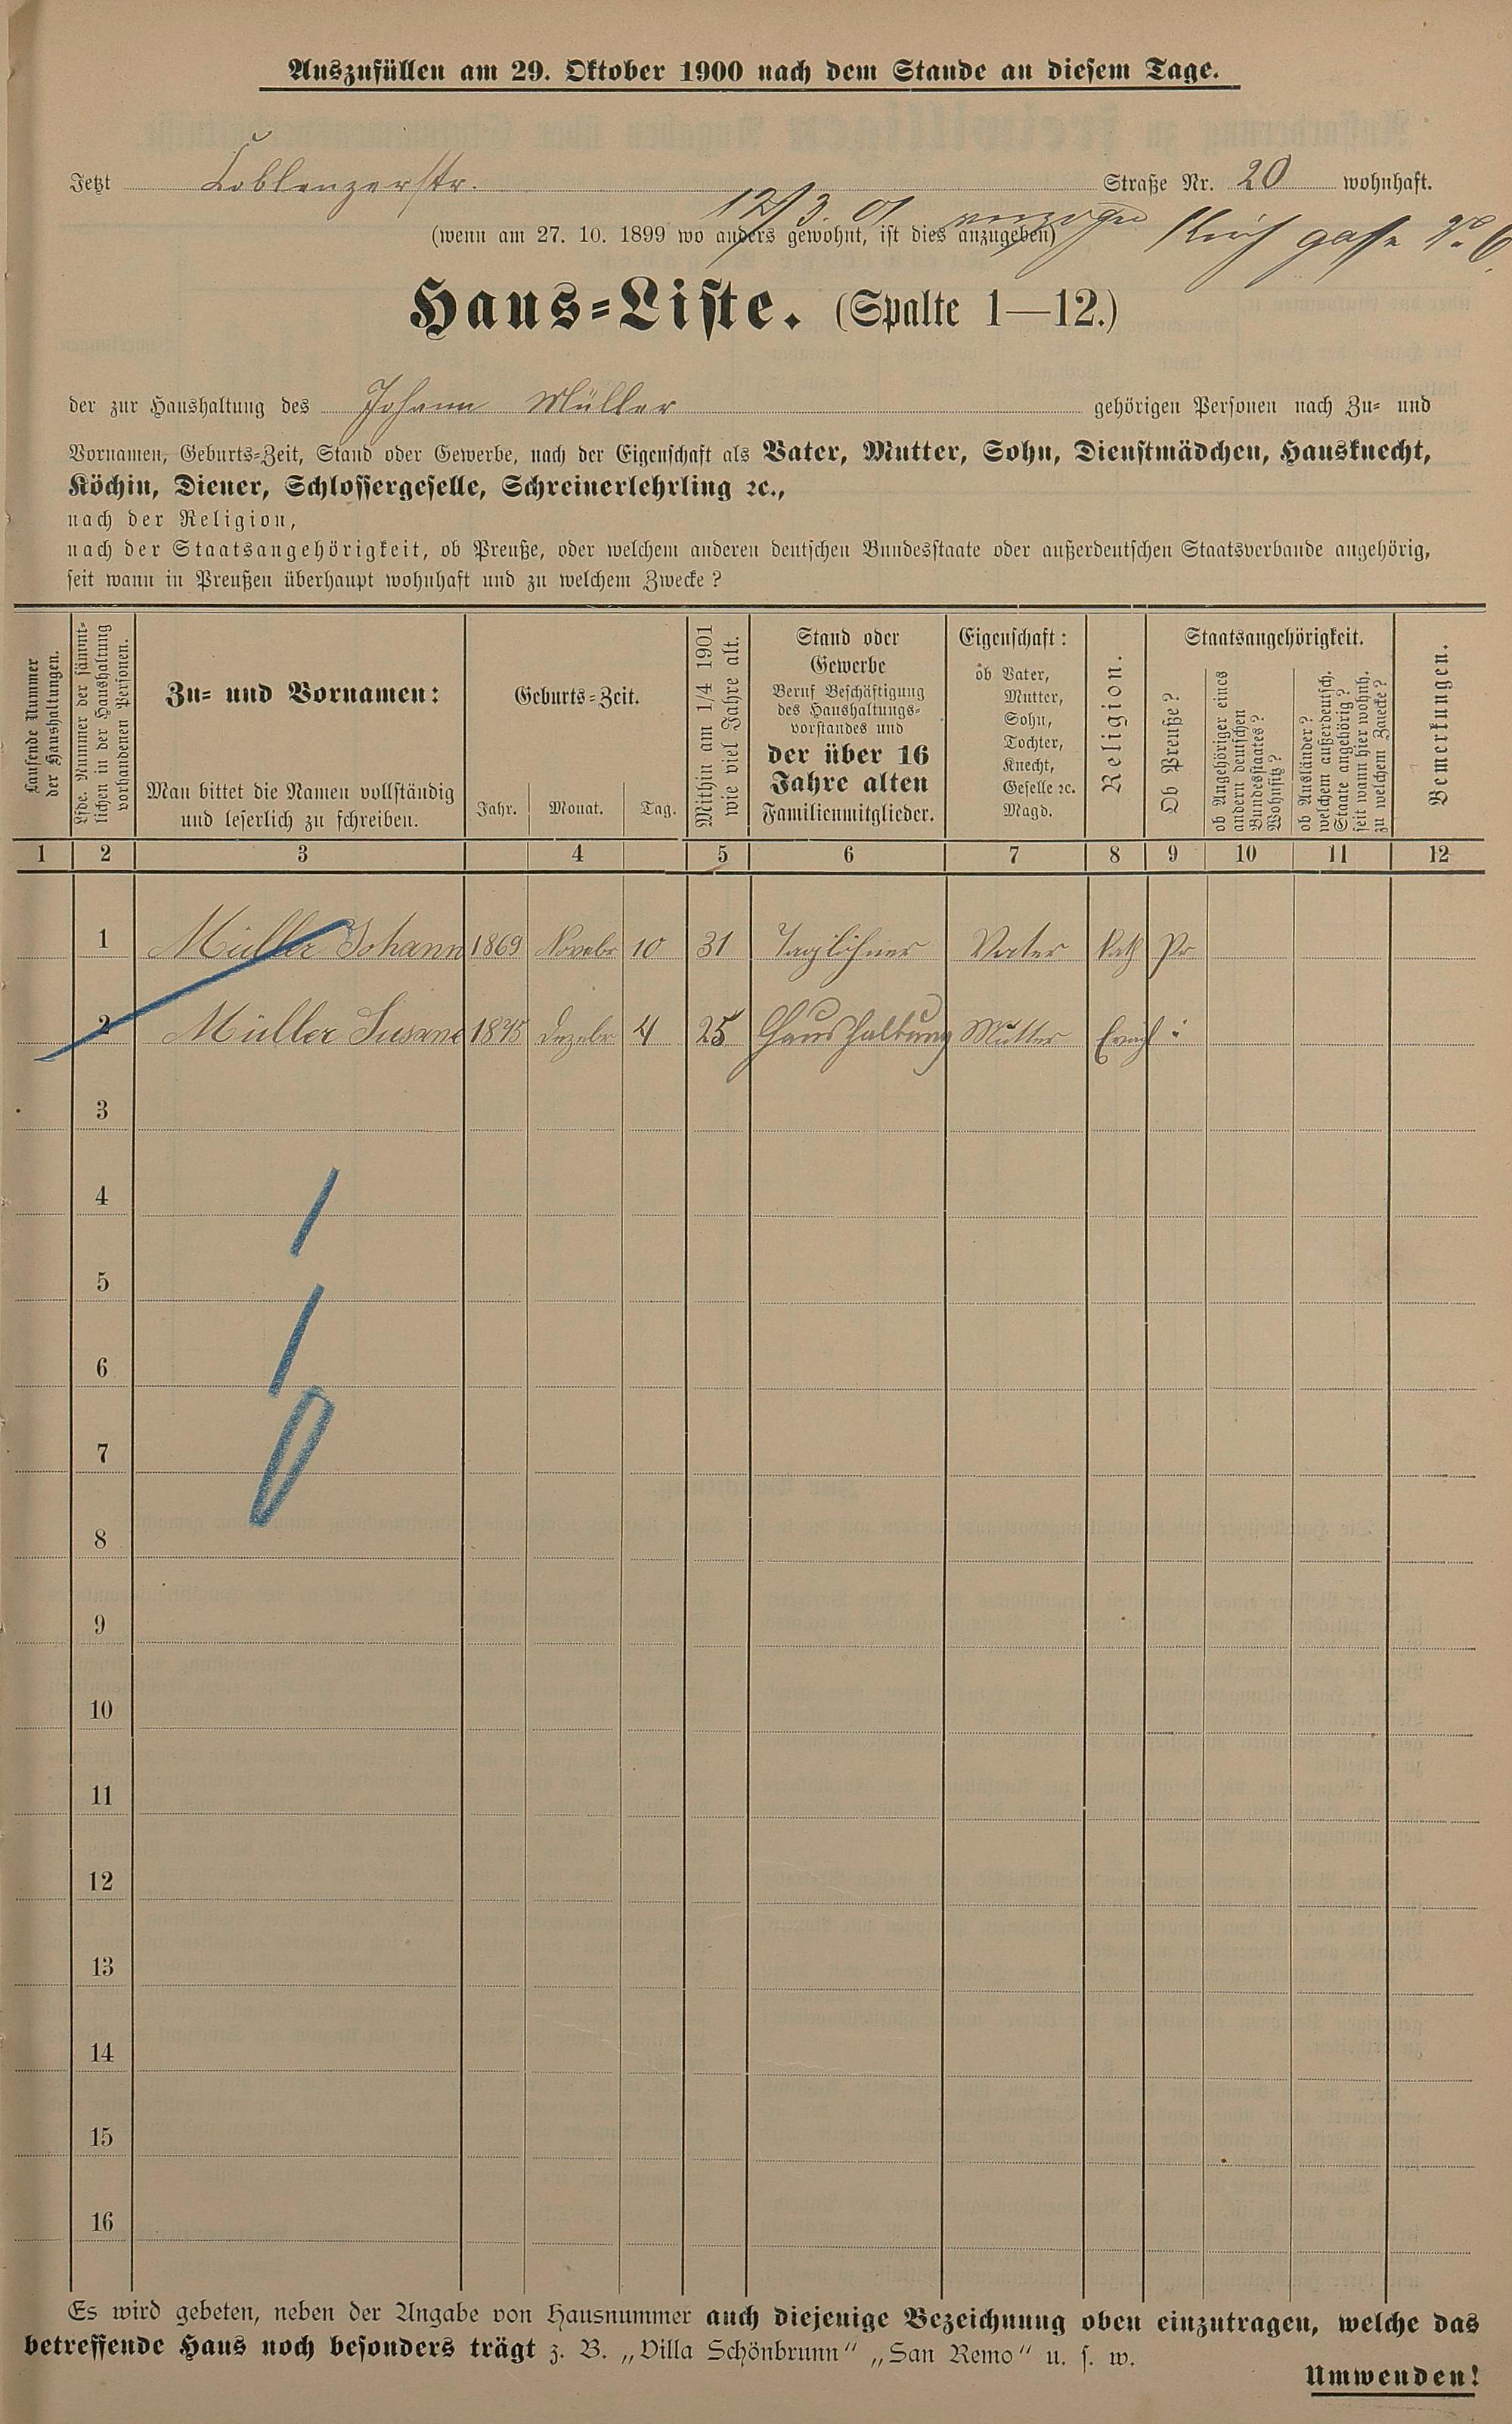 Auszufüllen am 29. Oktober 1900 nach dem Stande an diesem Tage.
Jetzt Coblenzerstr. Straße Nr. 20 wohnhaft.
12/3. 01 verzogen Kirchgasse No 6.
(wenn am 27. 10. 1899 wo anders gewohnt, ist dies anzugeben)
Haus-Liste. (Spalte 1—12.)
der zur Haushaltung des Johann Müller gehörigen Personen nach Zu- und
Vornamen, Geburts-Zeit, Stand oder Gewerbe, nach der Eigenschaft als Vater, Mutter, Sohn, Dienstmädchen, Hausknecht,
Köchin, Diener, Schlossergeselle, Schreinerlehrling ꝛc.,
nach der Religion,
nach der Staatsangehörigkeit, ob Preuße, oder welchem anderen deutschen Bundesstaate oder außerdeutschen Staatsverbande angehörig,
seit wann in Preußen überhaupt wohnhaft und zu welchem Zwecke?
Laufende Nummer
der Haushaltungen.
Lfde. Nummer der sämmt-
lichen in der Haushaltung
vorhandenen Personen.
Zu- und Vornamen:
Man bittet die Namen vollständig
und leserlich zu schreiben.
Geburts-Zeit.
Jahr. Monat. Tag.
Mithin am 1/4 1901
wie viel Jahre alt.
Stand oder
Gewerbe
Beruf Beschäftigung
des Haushaltungs-
vorstandes und
der über 16
Jahre alten
Familienmitglieder.
Eigenschaft:
ob Vater,
Mutter,
Sohn,
Tochter,
Knecht,
Geselle ꝛc.
Magd.
Religion.
Staatsangehörigkeit.
Ob Preuße?
ob Angehöriger eines
andern deutschen
Bundesstaates?
Wohnsitz?
ob Ausländer?
welchem außerdeutsch.
Staate angehörig?
seit wann hier wohnh.
zu welchem Zwecke?
Bemerkungen.
1 2 3 4 5 6 7 8 9 10 11 12
1 Müller Johann 1869 Novebr 10 31 Taglöhner Vater Kath Pr
2 Müller Susane 1875 Dezebr 4 25 Haushaltung Mutter Evagl "
3
4
5
6
7
8
9
10
11
12
13
14
15
16
Es wird gebeten, neben der Angabe von Hausnummer auch diejenige Bezeichnung oben einzutragen, welche das
betreffende Haus noch besonders trägt z. B. „Villa Schönbrunn“ „San Remo“ u. s. w.
Umwenden!